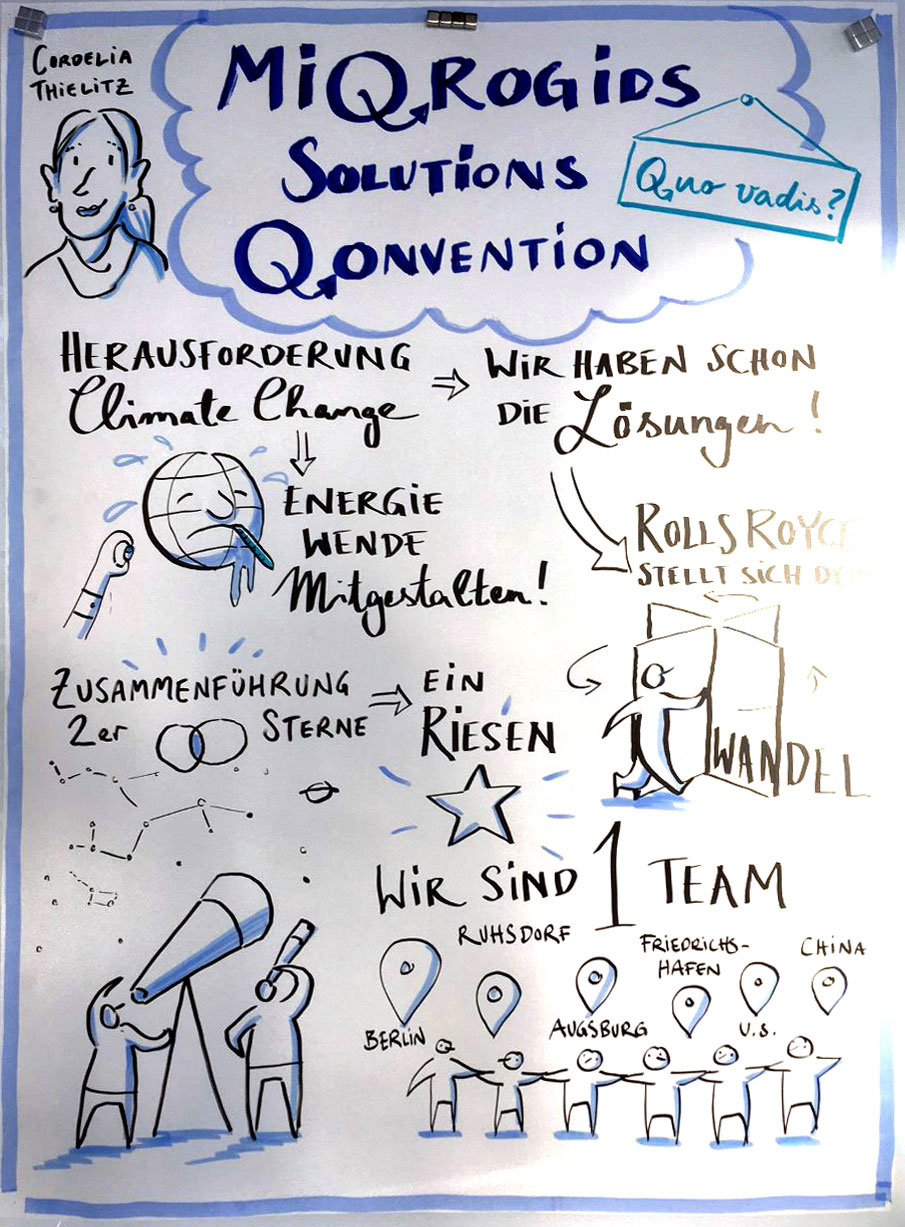 CORDELIA
THIELITZ
MiQROGiDS
SOLUTiONS
QONVENTiON
Quo vadis?
HERAUSFORDERUNG
Climate Change
WiR HABEN SCHON
DIE Lösungen!
ENERGIE
WENDE
Mitgestalten!
ROLLS ROYCE
STELLT SICH DEM
WANDEL
ZUSAMMENFÜHRUNG
2er STERNE
EiN
RIESEN
WiR SiND 1 TEAM
BERLIN
RUHSDORF
AUGSBURG
FRIEDRICHS-
HAFEN
U.S.
CHINA